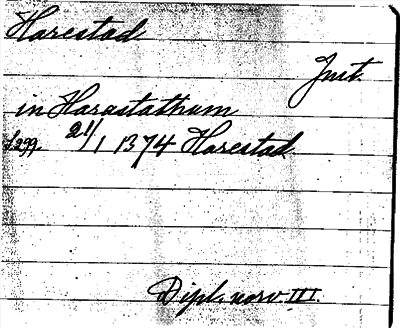 Harestad
Just
in Harastathum
s. 299. 21/1 1374 Harestad
Dipl. norv. III.